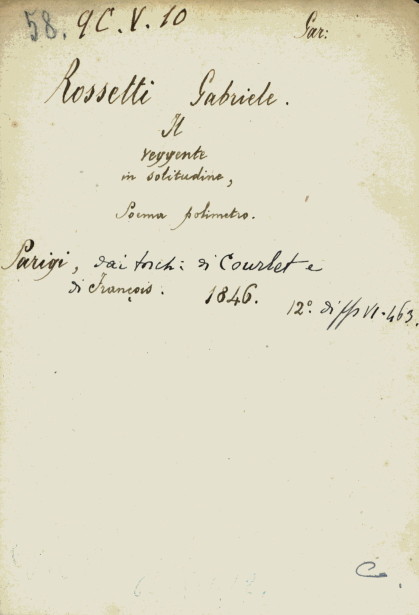 58. 9C.V.10
Gar:
Rossetti Gabriele.
Il
veggente
in solitudine,
Poema polimetro.
Parigi, dai torchi di Courlet e
di François. 1846. 12.° di pp VI-463.
C